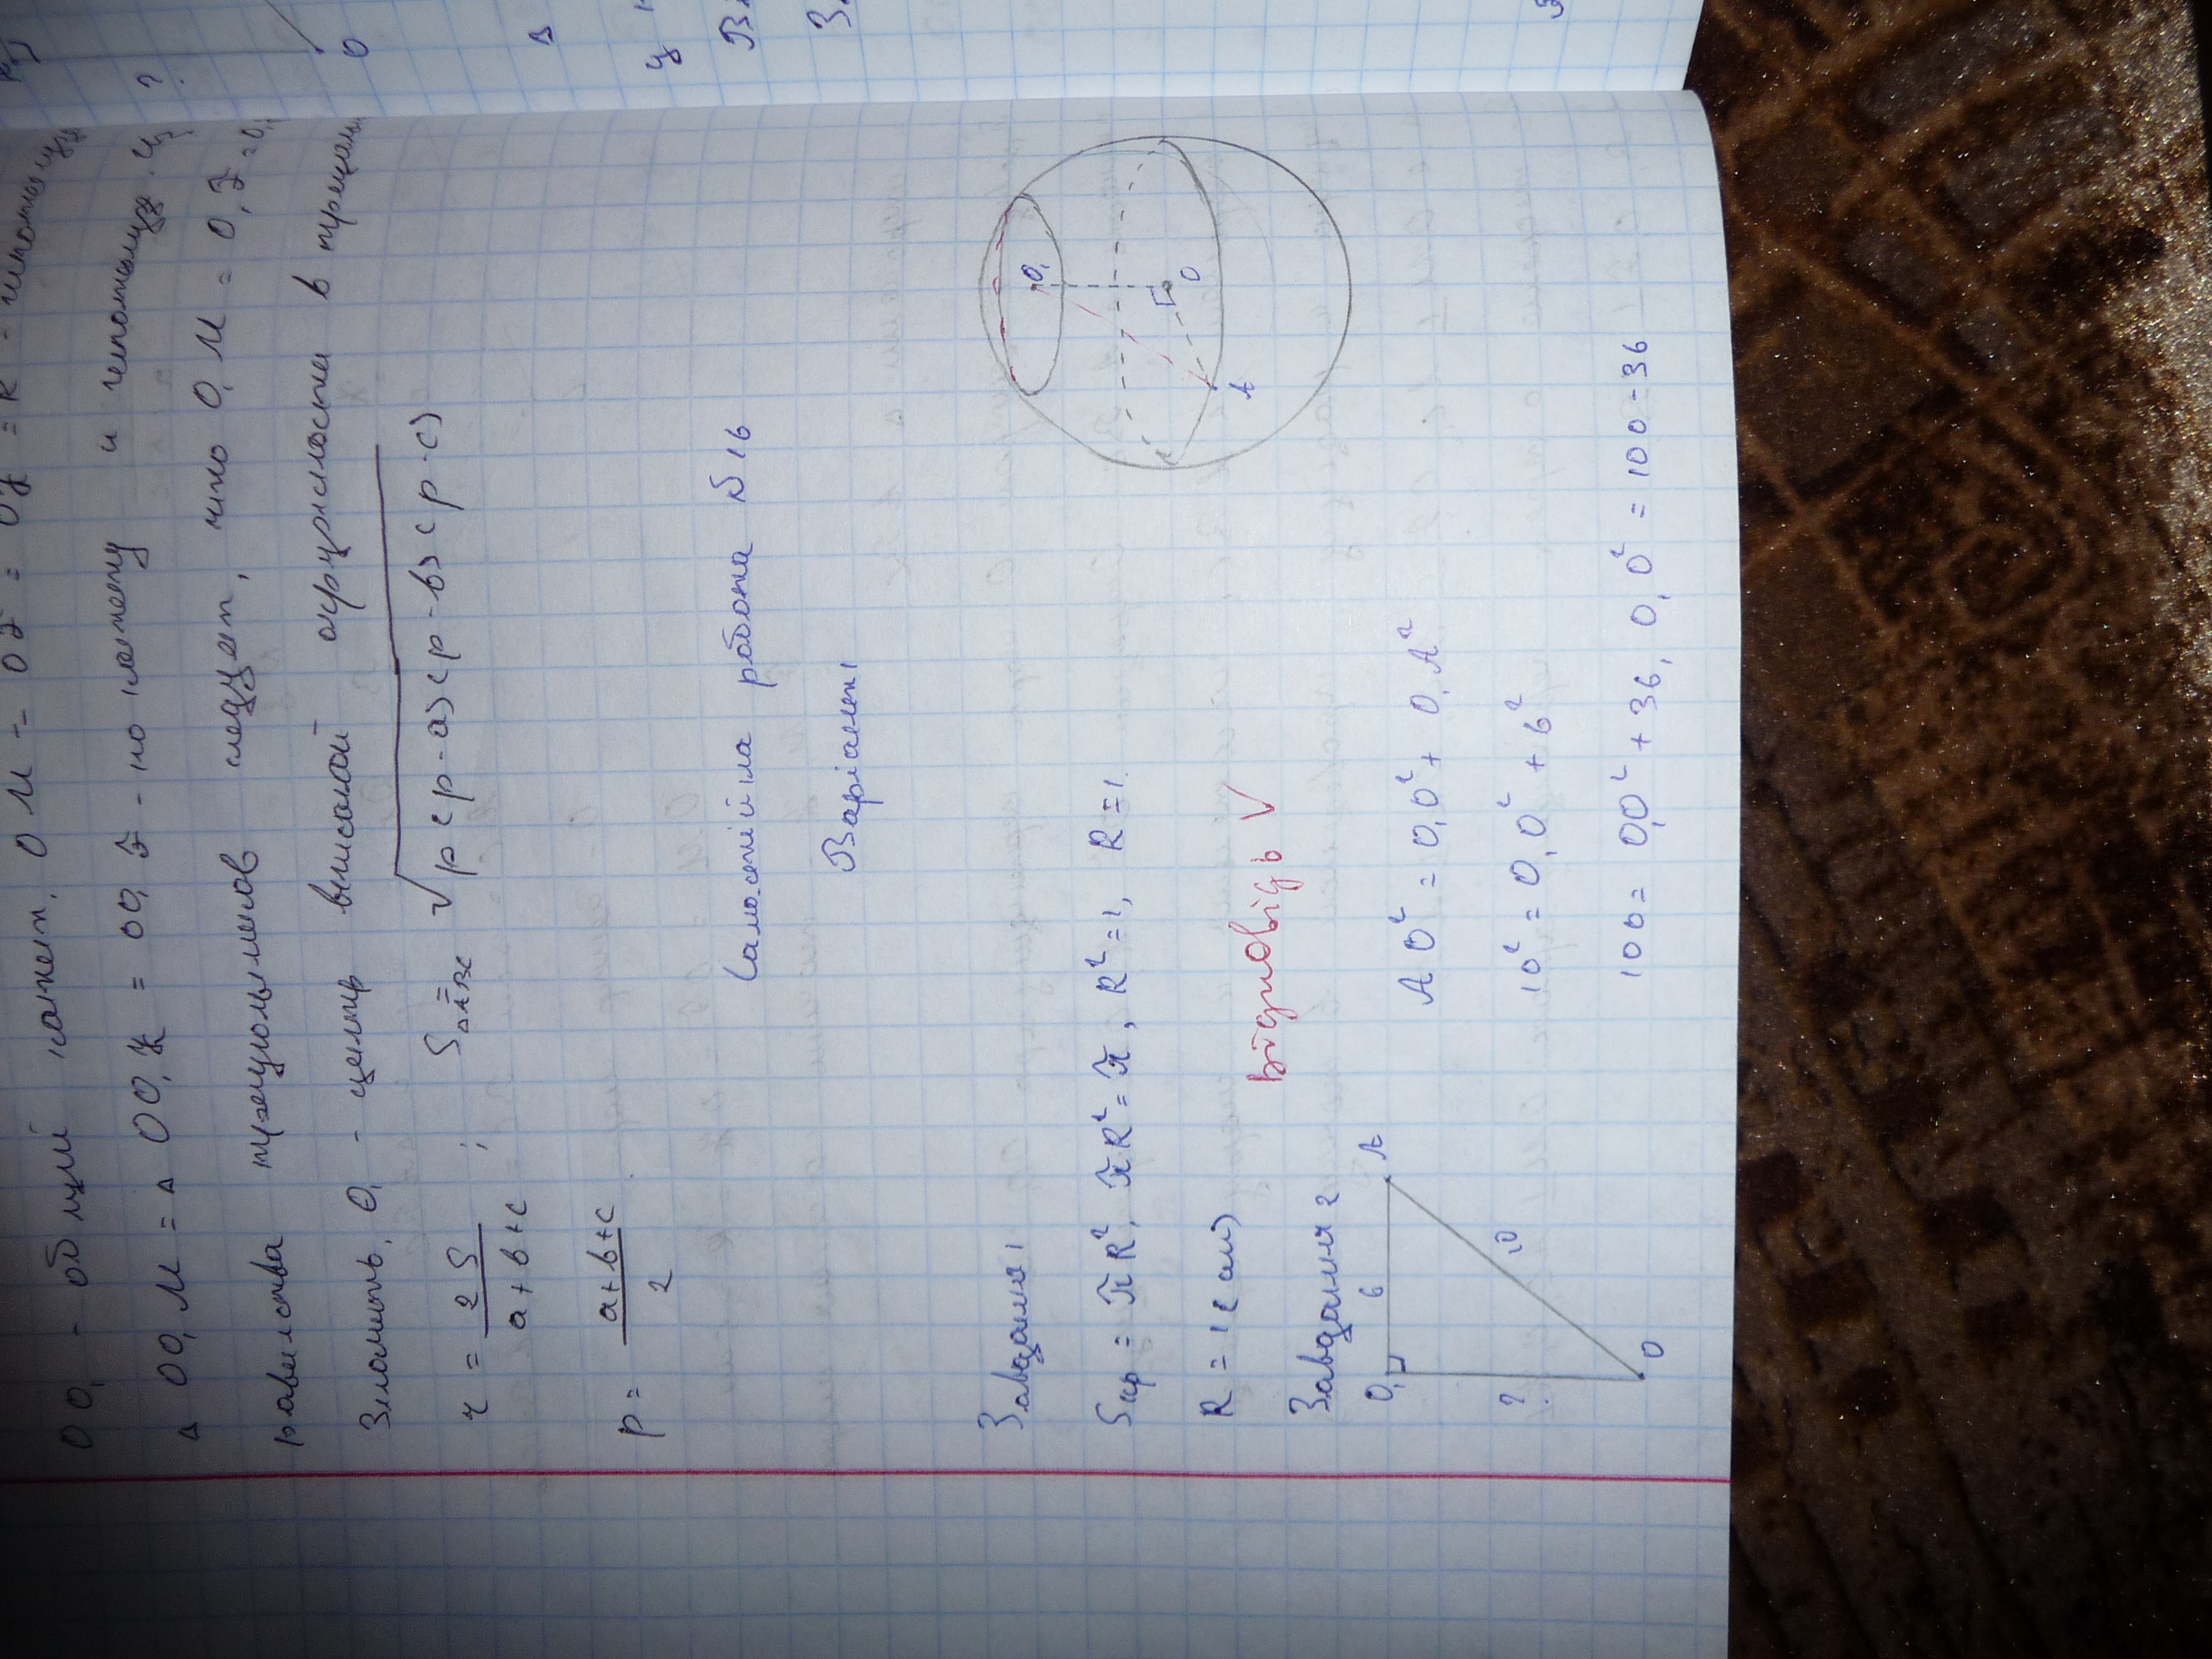 OO₁ - общий катет. OM = OZ = OY = R - гипотенузы
△ OO₁M = △ OO₁K = OO₁Z - по катету и гипотенузе. Из
равенства треугольников следует, что O₁M = O₁Z = O₁
Значить, O₁ - центр вписаной окружности в треуголь
r = 2S / a+b+c ; S△ABC = √p(p-a)(p-b)(p-c)
p = a+b+c / 2
Самостійна робота №16
Варіант 1
Завдання 1
Sкр = πR², πR² = π, R² = 1, R = 1
R = 1(см)
відповідь V
Завдання 2
O₁ 6 A
? 10
O
AO² = O₁O² + O₁A²
10² = O₁O² + 6²
100 = O₁O² + 36, O₁O² = 100 - 36
O₁
O
A